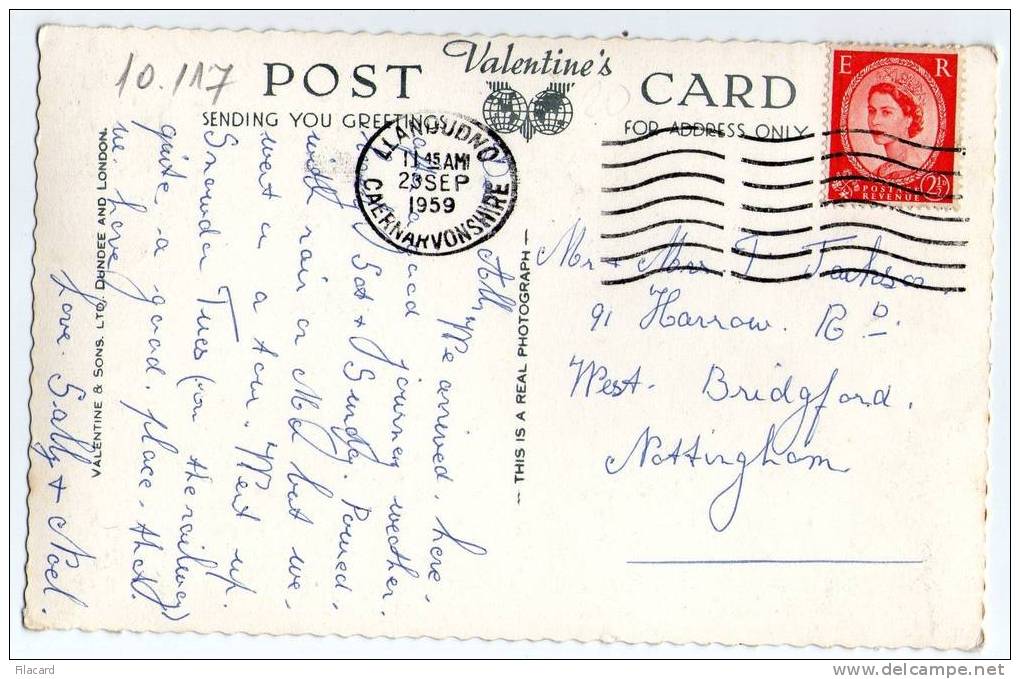 10.117
Valentine's
POST CARD
SENDING YOU GREETINGS
FOR ADDRESS ONLY
LLANDUDNO
11 45 AM
23 SEP
1959
CAERNARVONSHIRE
E R
POSTAGE
REVENUE
2½D
All, We arrived here
good journey weather
Sat & Sunday. Poured
with rain on Md but we
went a tour. Went up
Snowdon Tues (on the railway)
quite a good place that
we have
Love Sally & Noel.
Mr & Mrs T Jackson.
91 Harrow. RD.
West. Bridgford.
Nottingham
THIS IS A REAL PHOTOGRAPH
VALENTINE & SONS. LTD. DUNDEE AND LONDON.
Filacard
www.delcampe.net